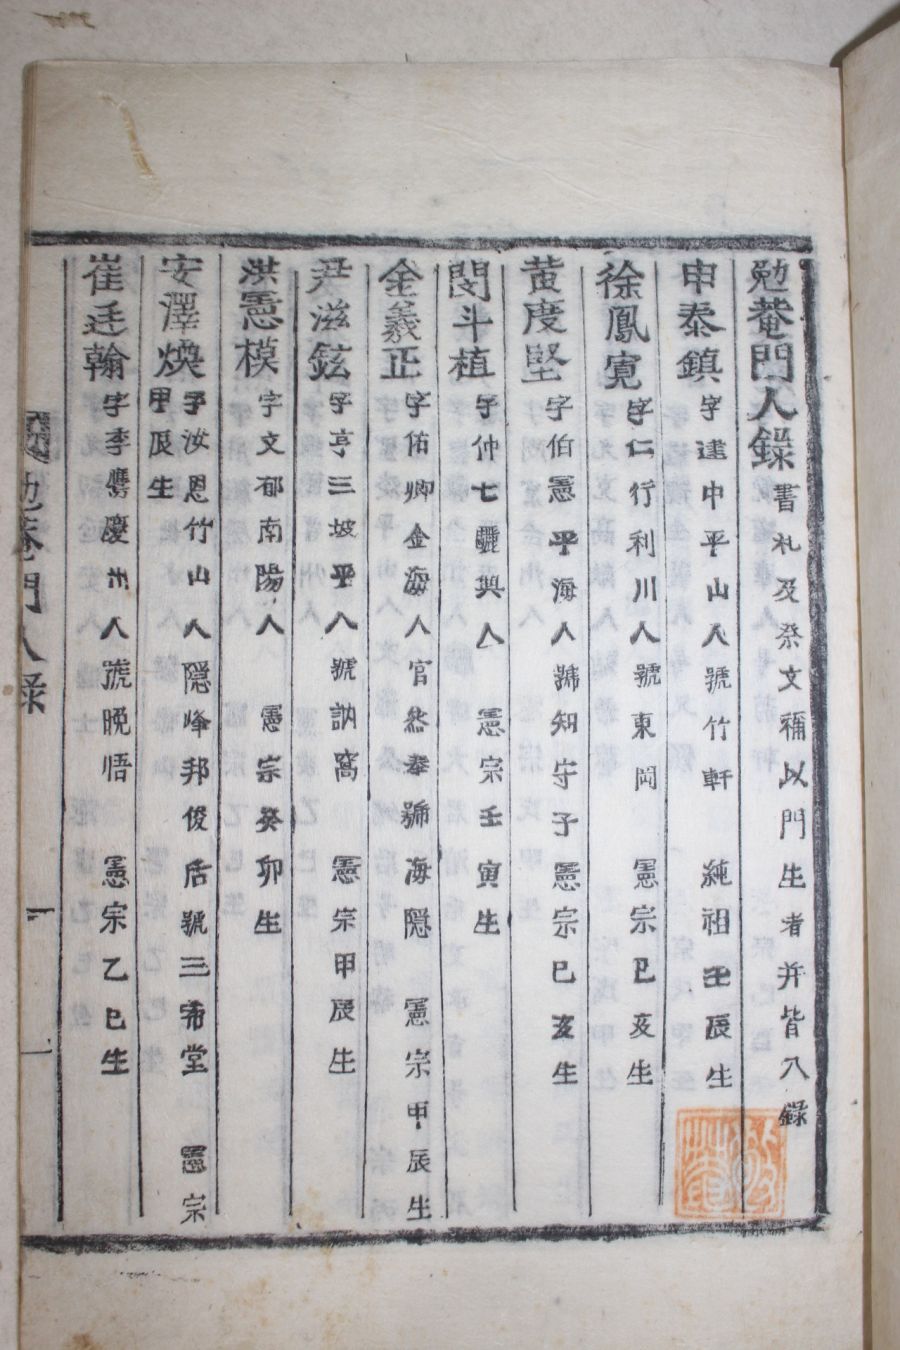 勉菴門人錄 書札及祭文稱以門生者并皆入錄
申泰鎮 字達中平山人號竹軒 純祖壬辰生
徐鳳寬 字仁行利川人號東岡 憲宗己亥生
黃度堅 字伯憲平海人號知守子憲宗己亥生
閔斗植 字仲七驪興人 憲宗壬寅生
金羲正 字佑卿金海人官然奉號海隱 憲宗甲辰生
尹滋鉉 字亨三坡平人號訥窩 憲宗甲辰生
洪憲模 字文郁南陽人 憲宗癸卯生
安澤煥 字汝恩竹山人隱峰邦俊后號三希堂 憲宗
甲辰生
崔廷翰 字季鷹慶州人號晩悟 憲宗乙巳生
勉菴門人錄 一